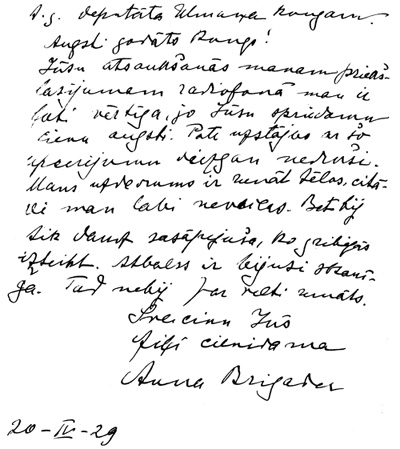 A. g. deputāta Ulmaņa kungam.
Augsti godāts kungs!
Jūsu atsaukšanās manam priekš-
lasījumam radiofonā man ir
ļoti vērtīga, jo Jūsu spriedumu
cienu augsti. Pate uzstājos ar šo
apcerējumu diezgan nedroši.
Mans uzdevums ir runāt tēlos, citā-
di man labi neveicas. Bet bij
tik daudz sasāpējuša, ko gribējās
izteikt. Atbalss ir bijusi skanī-
ga. Tad nebij par velti runāts.
Sveicinu Jūs
dziļi cienīdama
Anna Brigader
20-IV-29